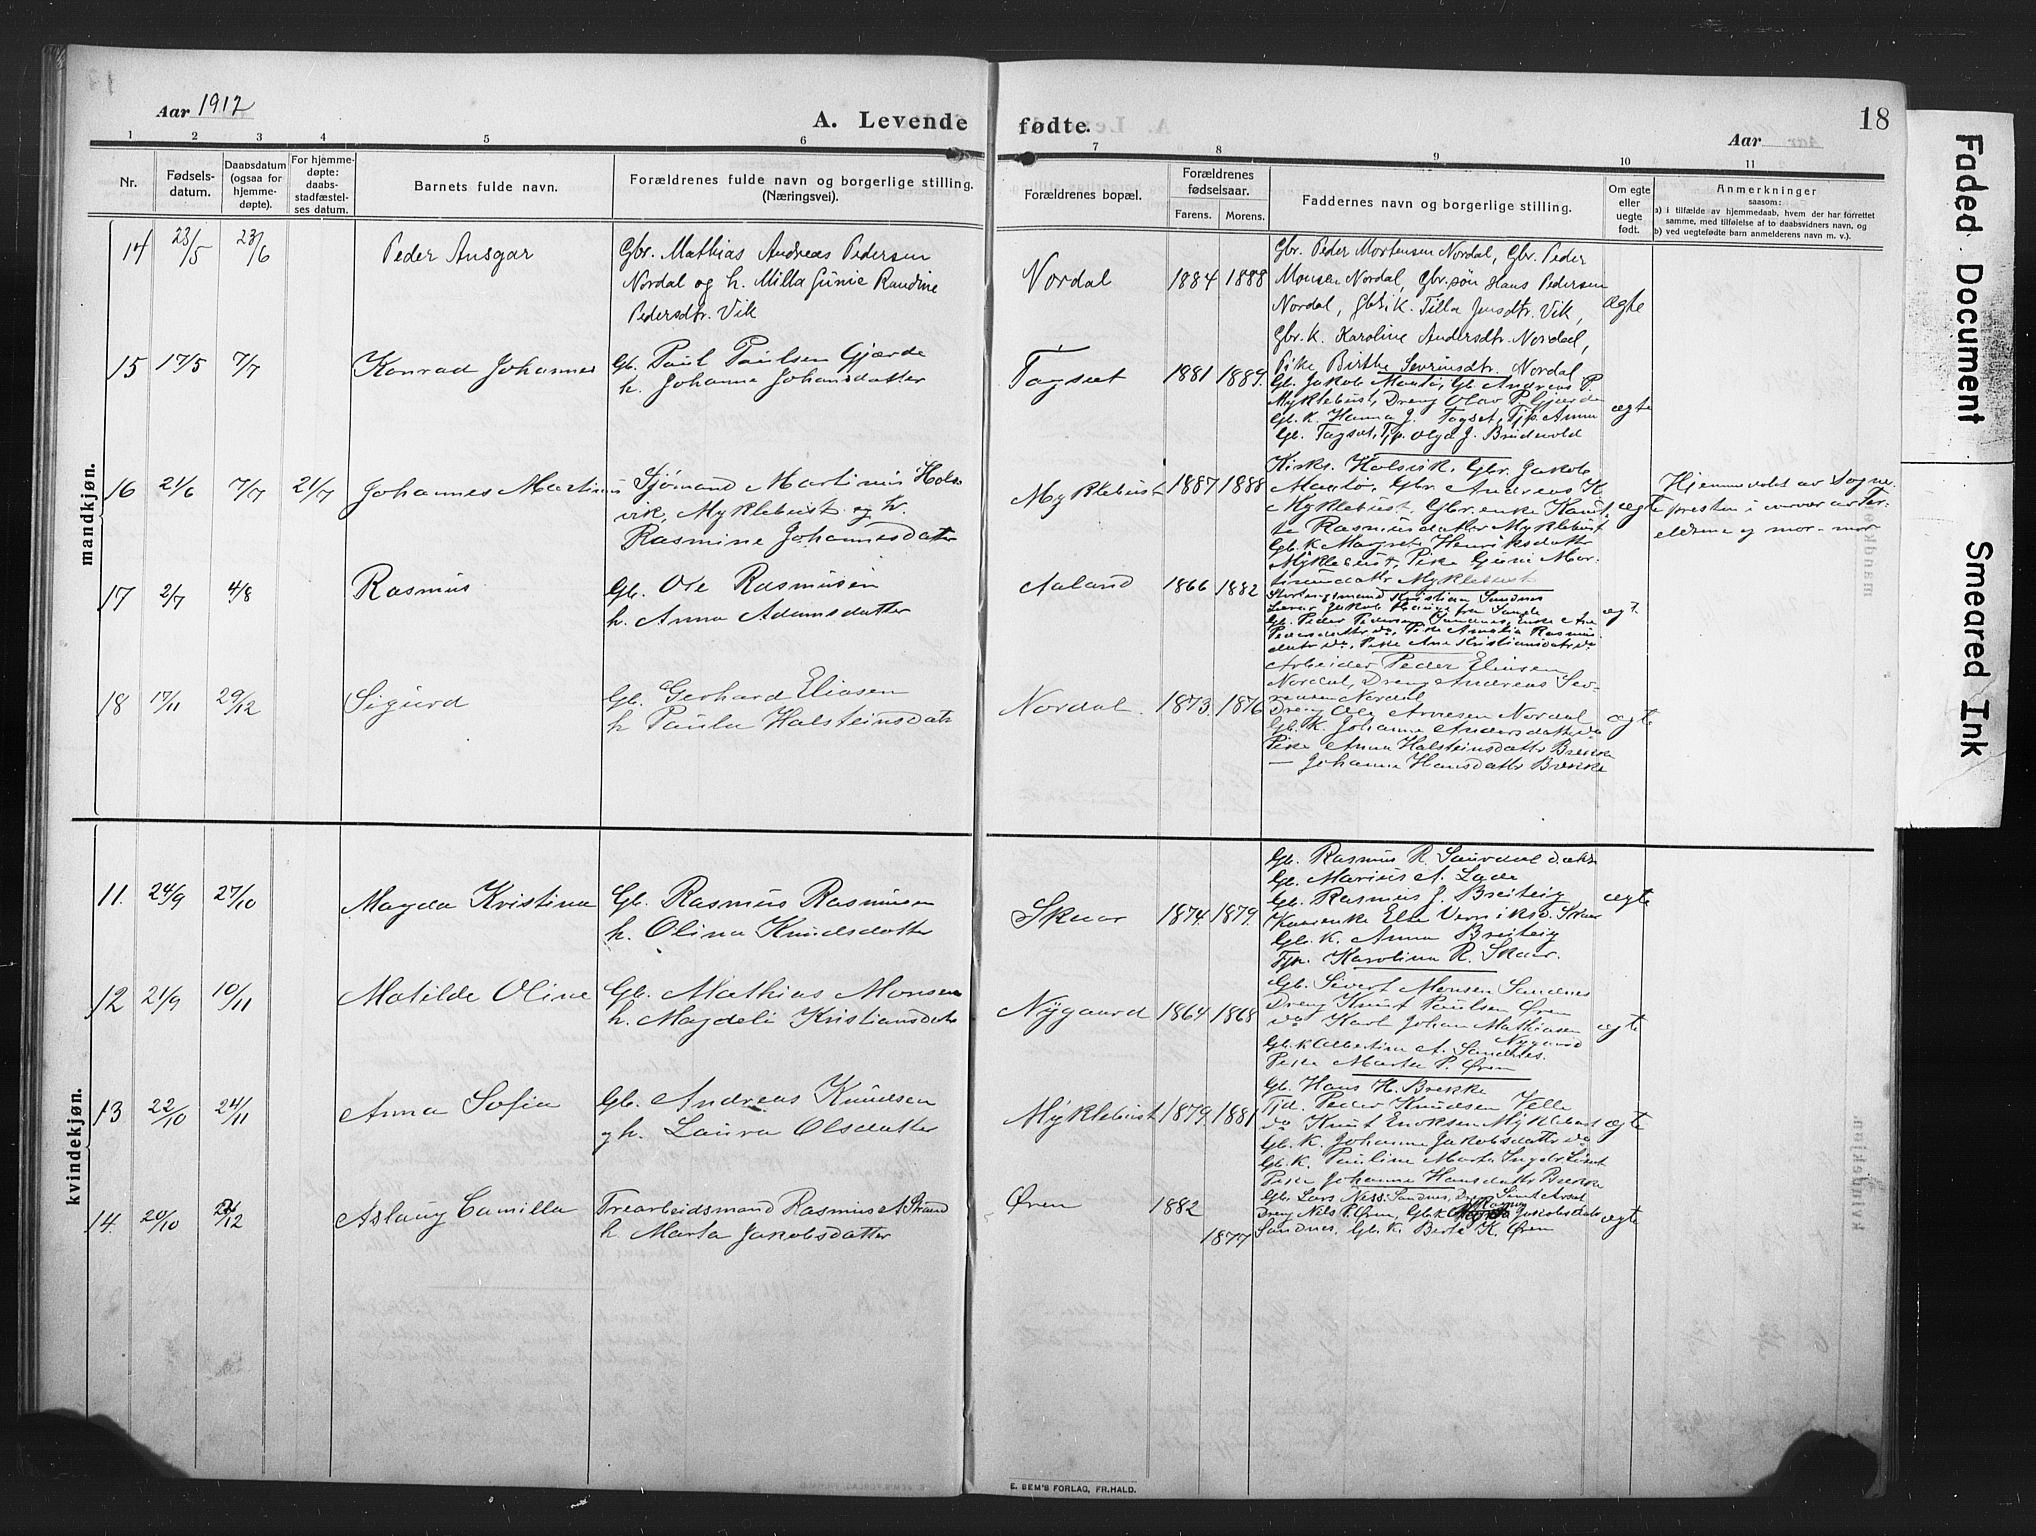 Aar 1912
A. Levende fødte.
Aar
18
1 2 3 4 5 6 7 8 9 10 11
Nr.
Fødsels-
datum.
Daabsdatum
(ogsaa for
hjemme-
døpte).
For hjemme-
døpte:
daabs-
stadfæstel-
ses datum.
Barnets fulde navn.
Forældrenes fulde navn og borgerlige stilling.
(Næringsvei).
Forældrenes bopæl.
Forældrenes
fødselsaar.
Farens. Morens.
Faddernes navn og borgerlige stilling.
Om egte
eller
uegte
født.
Anmerkninger
saasom:
a) i tilfælde av hjemmedaab, hvem der har forrettet
samme, med tilføielse af to daabsvidners navn, og
b) ved uegtefødte barn anmelderens navn m. v.).
mandkjøn.
14 23/5 23/6 Peder Ansgar
Gbr. Mathias Andreas Pedersen
Nordal og h. Milla Gunie Raudine
Pedersdtr. Vik
Nordal 1884 1888
Gbr. Peder Mortensen Nordal, Gbr. Peder
Monsen Nordal, Gbr.søn Hans Pedersen
Nordal, Gbr. k. Tilla Jensdtr. Vik,
Gbr. K. Karoline Andersdtr. Nordal,
Pike Birthe Sevrinsdtr. Nordal
ægte
15 17/5 7/7 Konrad Johannes
Gb. Paul Paulsen Gjærde
h. Johanne Johansdatter
Tagset 1881 1889.
Gb. Jakob Maatø, Gb. Andreas P.
Myklebust, Dreng Olav P. Gjærde
Gb. K. Hanna J. Tagset, Tjp. Anna
Gb. Tagset, Tjp. Olga J.
ægte
16 21/6 7/7 21/7 Johannes Martinus
Sjømand Martinus Hols
vik, Myklebust og h.
Rasmine Johannesdatter
Myklebust 1887 1888
Kirks. Holsvik, Gbr. Jakob
Maatø, Gbr. Andreas K.
Myklebust, Gbr. enke Kanut
te Rasmusdatter Myklebust
Gb. K. Margrete Henriksdatter
Myklebust, Pike Gunie Mor-
tinusdatter Myklebust
ægte
Hjemmedøbt av Sogne-
presten i nærvær av for-
ældrene og mor-mor
17 2/7 4/8 Rasmus
Gb. Ole Rasmusen
h. Anna Adamsdatter
Aaland 1866 1882
Stortingsmand Kristian Sandnes
Lærer Jakob Hauge fra Sande
Gb. Peder Pedersen Sandnes, Enke Ane
Pedersdatter do, Pike Amalia Rasmus
datter do, Pike Ane Kristiansdatter do
ægt.
18 17/11 29/12 Sigurd
Gb. Gerhard Eliasen
h Paula Halsteinsdatr
Nordal. 1873. 1876
Arbeider Peder Eliasen
Nordal, Dreng Andreas Sev-
rensen Nordal
Dreng Ole Arnesen Nordal
Gb. K. Johanne Andersdatter do
Pike Anna Halsteinsdatter Brekke
— Johanne Hansdatter Brekke
ægte
kvindekjøn.
11. 24/9 27/10 Magda Kristina
Gb. Rasmus Rasmusen
h. Olina Knudsdatter
Skaar 1874. 1879.
Gb. Rasmus R. Saurdal
Gb. Marius A. Lade
Gb. Rasmus J. Breiteig
Kaarenke Else Skaar
Gb. K. Anna Breiteig
Tjp. Karolina R. Skaar.
ægte
12 21/9 10/11 Matilde Oline
Gb. Mathias Monsen
h. Magdeli Kristiansdatr
Nygaard 1864 1868
Gb. Sivert Monsen Sandnes
Dreng Knut Paulsen Øren
do Karl Johan Mathiasen
Nygaard
Gb. K Albertine A. Sandnes.
Pike Marta P. Øren
ægte
13 22/10 24/11 Anna Sofia
Gb. Andreas Knudsen
og h. Laura Olsdatter
Myklebust 1879 1881
Gb. Hans H. Brekke
Tjd. Peder Knudsen Velle
do Knut Enoksen Myklebust
Gb. K. Johanne Jakobsdatter do
Gb. K. Pauline Marta
Pike Johanne Hansdatter Brekke
ægte
14. 20/10 /12 Aslaug Camilla
Træarbeidsmand Rasmus A Strand
h. Marta Jakobsdatter
Øren 1882
1877
Gb. Lars Ness. Sandnes, Dreng
Dreng Nils P. Øren, Gb. K. Jakobsdatr
Sandnes, Gb. K. Berte K. Øren
ægte
E. SEM'S FORLAG, FR.HALD.
Faded Document
Smeared Ink